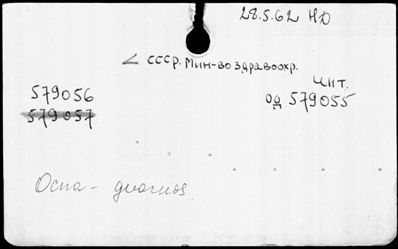 28.5.62 НД
< СССР. Мин-во здравоохр.
Чит.
579056
од 579055
579057
Оспа - диагноз